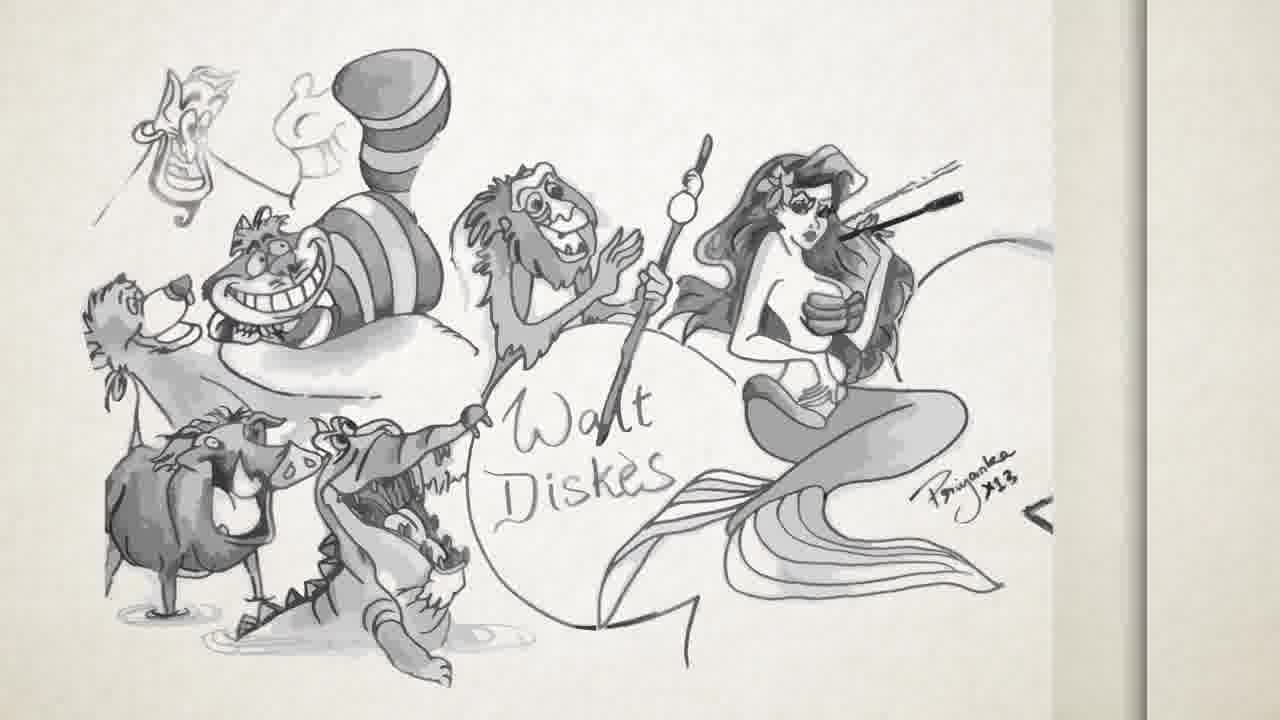 Walt
Diskès
Priyanka
x13